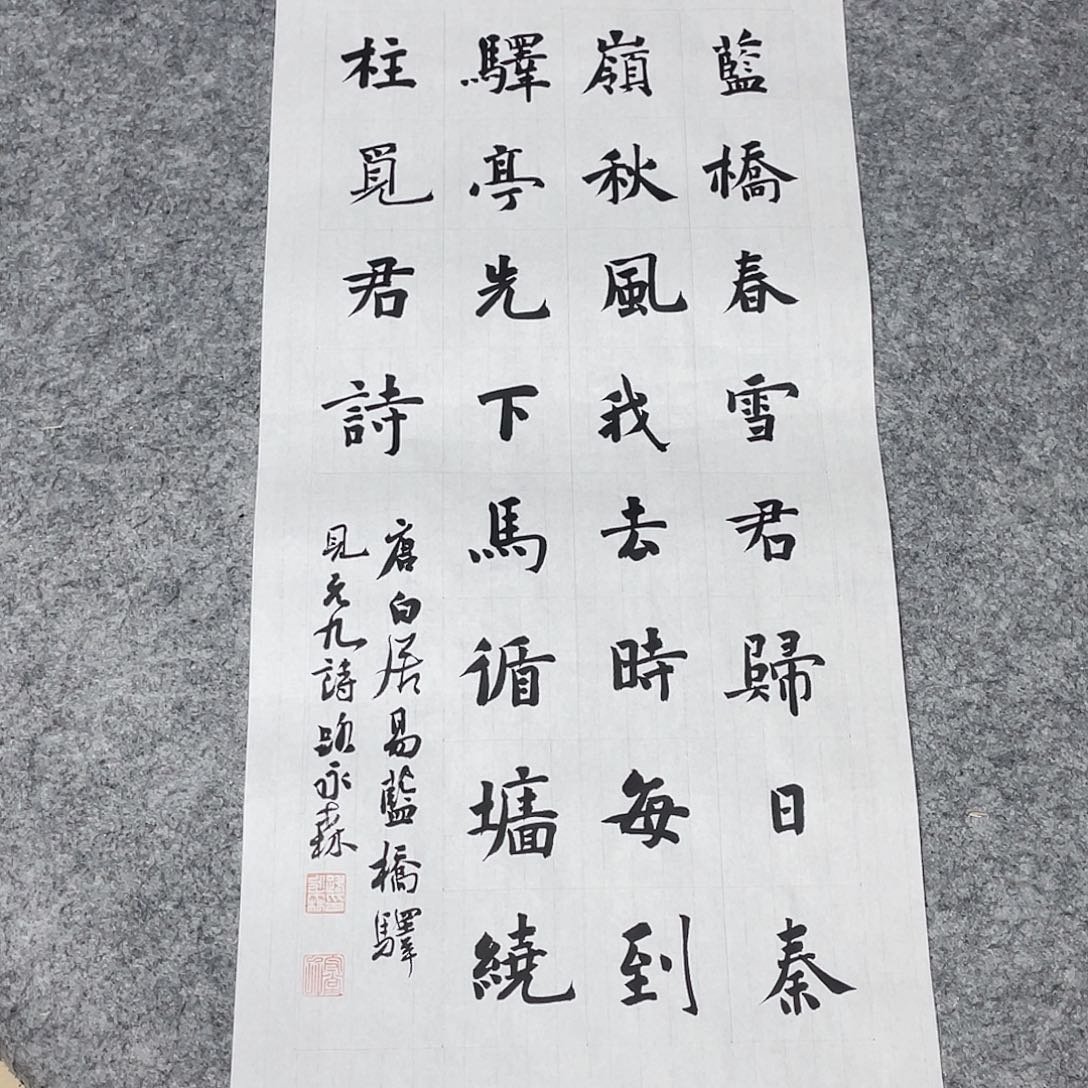 藍橋春雪君歸日秦
嶺秋風我去時每到
驛亭先下馬循墻繞
柱覓君詩
唐白居易藍橋驛
見元九詩 永森